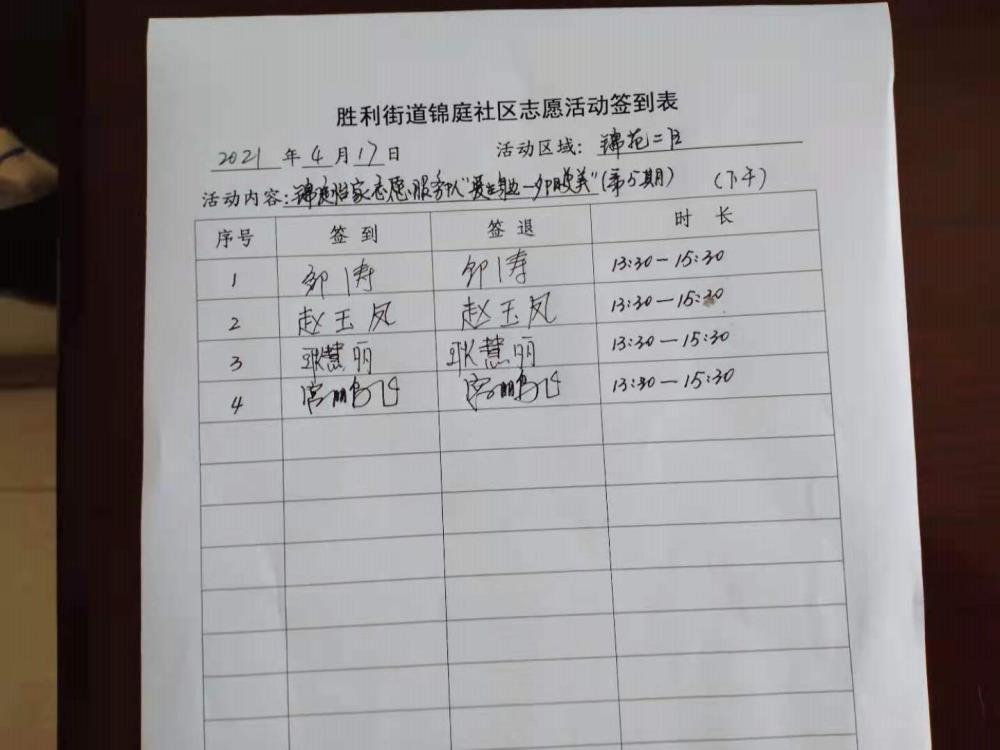 胜利街道锦庭社区志愿活动签到表
2021 年 4 月 17 日 活动区域: 锦苑二区
活动内容: 锦庭怡家志愿服务队"爱在身边一夕时美"(第5期) (下午)
序号 签到 签退 时长
1 邹涛 邹涛 13:30-15:30
2 赵玉凤 赵玉凤 13:30-15:30
3 耿慧丽 耿慧丽 13:30-15:30
4 宫鹏飞 宫鹏飞 13:30-15:30